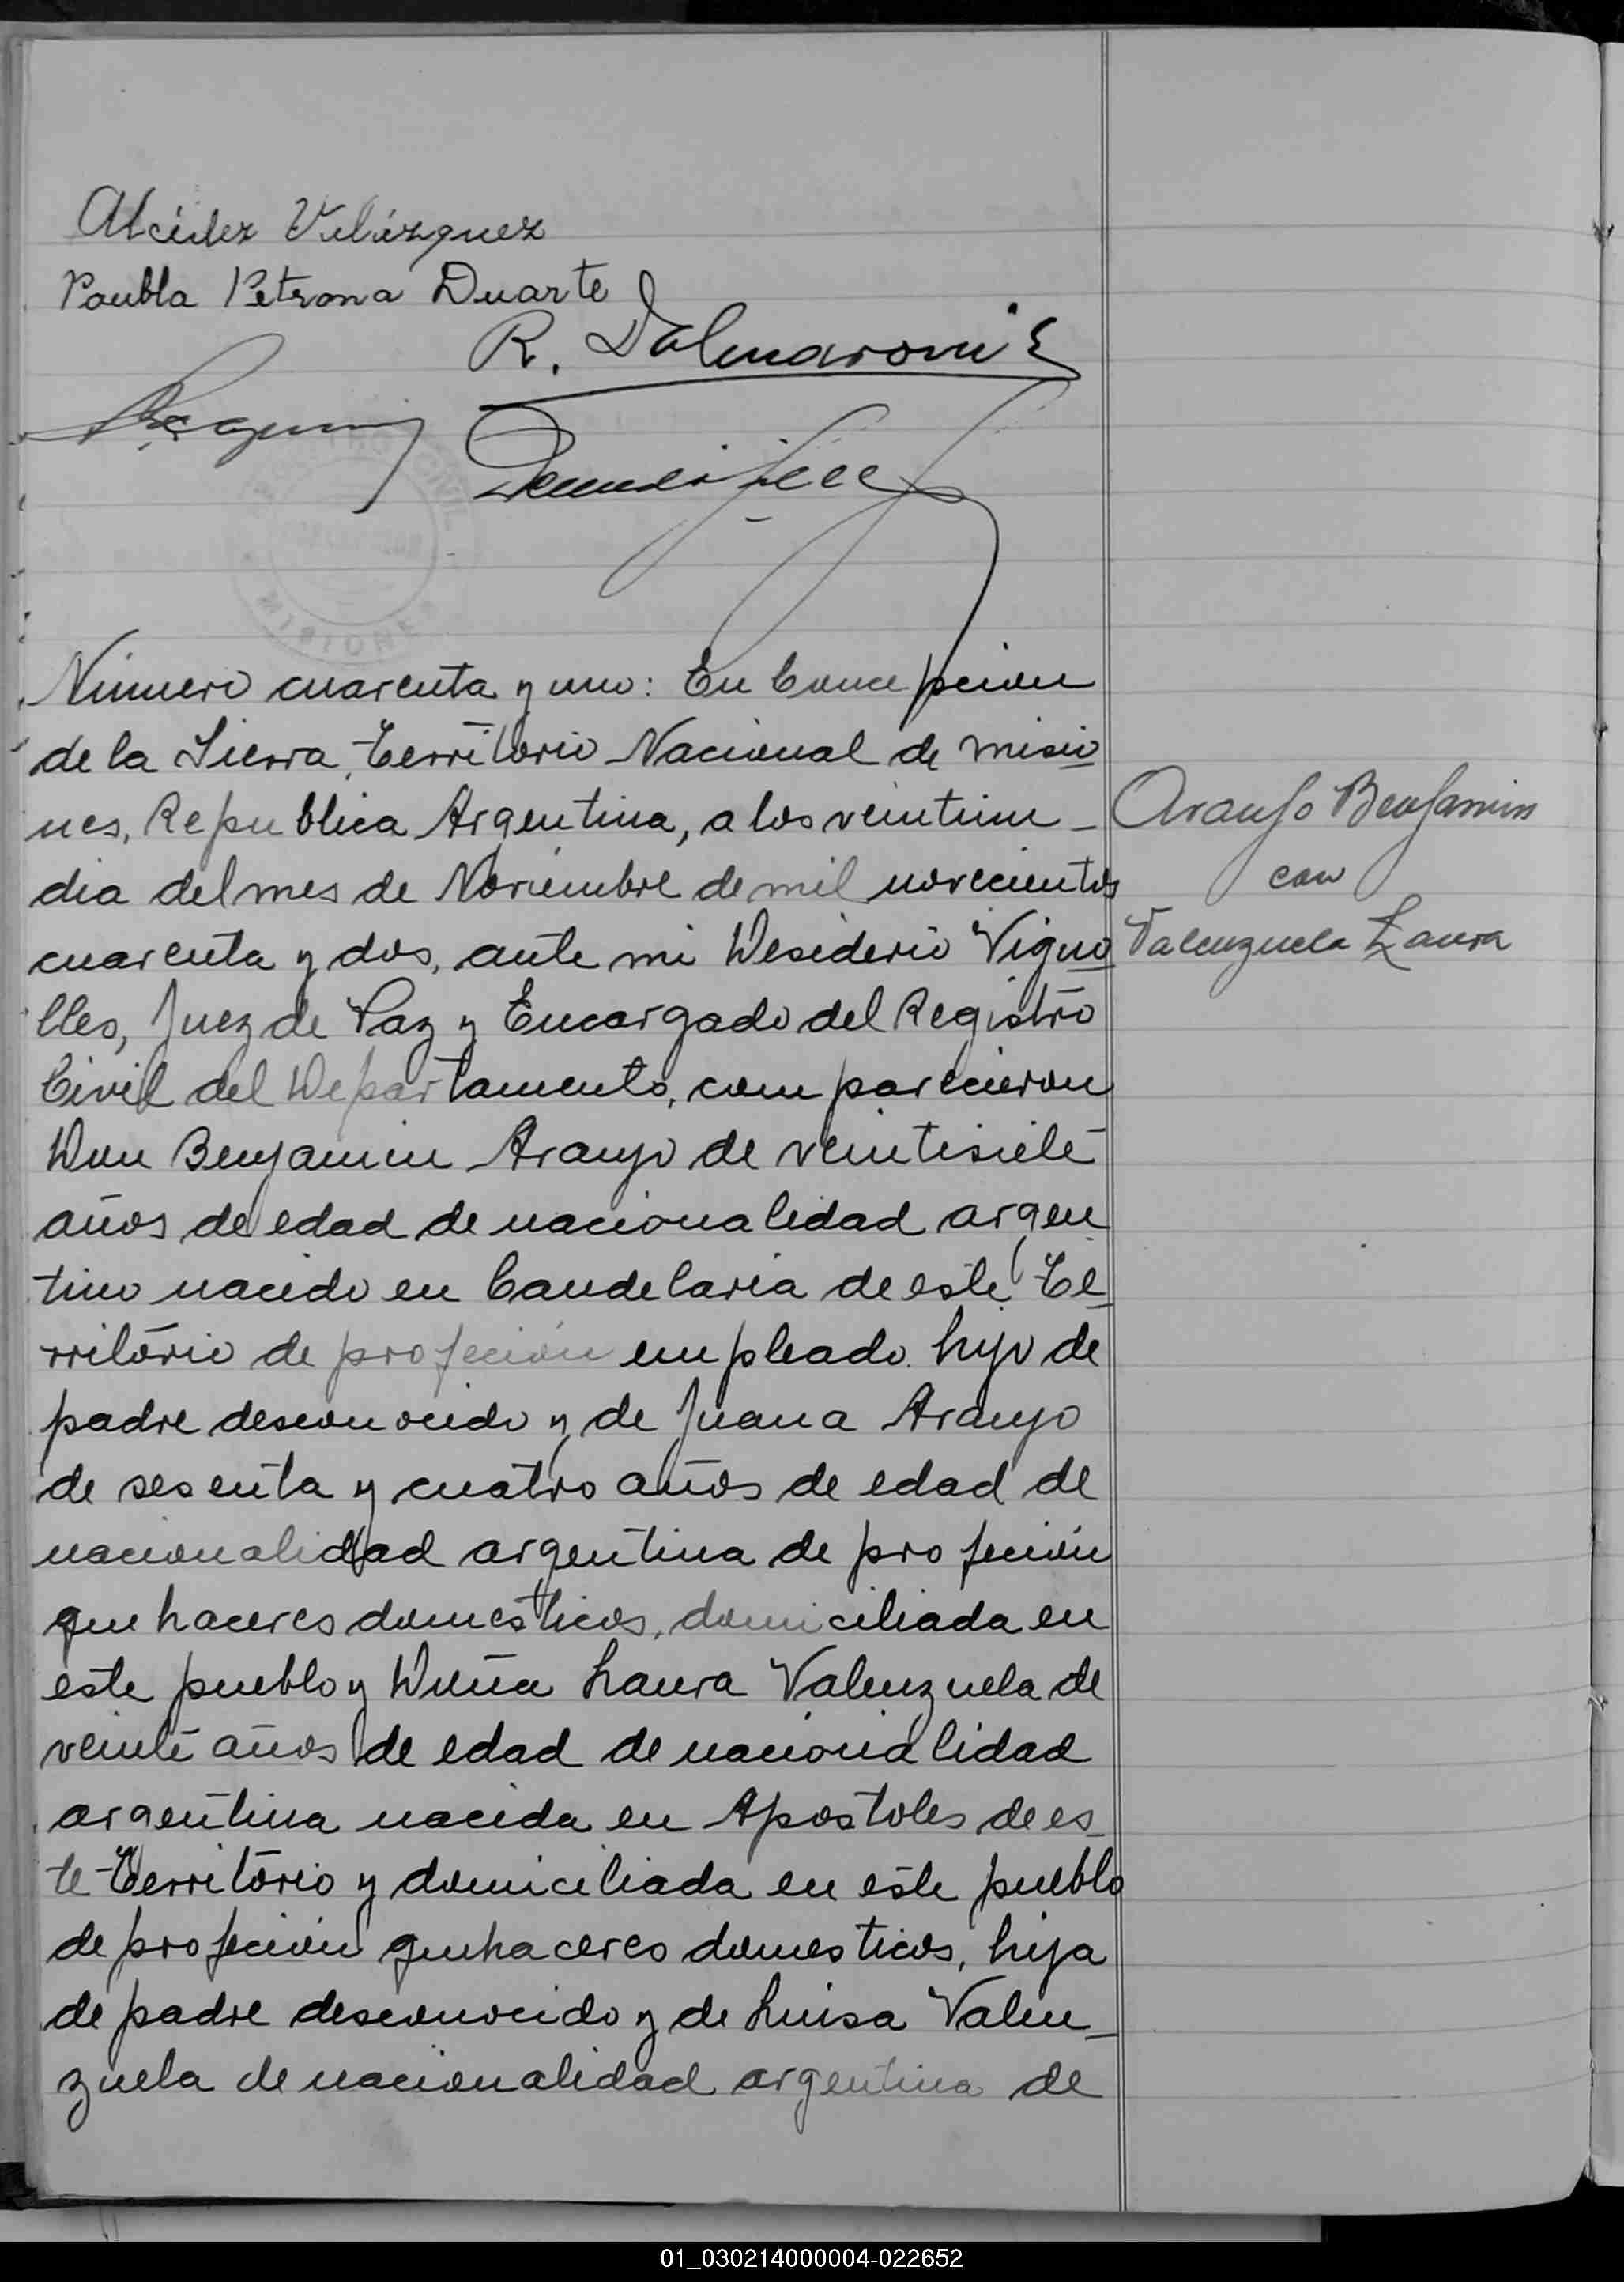 Alcídez Velázquez
Poubla Petrona Duarte
R. Dalmaroni
REGISTRO CIVIL
MISIONES
Número cuarenta y uno: En Concepcion
de la Sierra, Territorio Nacional de Misio
nes, Republica Argentina, a los veintiun
dia del mes de Noviembre de mil novecientos
cuarenta y dos, ante mi Desiderio Vigno
lles, Juez de Paz y Encargado del Registro
Civil del Departamento, comparecieron
Don Benjamin Araujo de veintisiete
años de edad de nacionalidad argen
tino nacido en Candelaria de este Te
rritório de profecion empleado hijo de
padre desconocido y de Juana Araujo
de sesenta y cuatro años de edad de
nacionalidad argentina de profeción
quehaceres domesticos, domiciliada en
este pueblo y Doña Laura Valenzuela de
veinte años de edad de nacionalidad
argentina nacida en Apostoles de es
te Territorio y domiciliada en este pueblo
de profeción quehaceres domesticos, hija
de padre desconocido y de Luisa Valen
zuela de nacionalidad argentina de
Araujo Benjamin
con
Valenzuela Laura
01_030214000004-022652